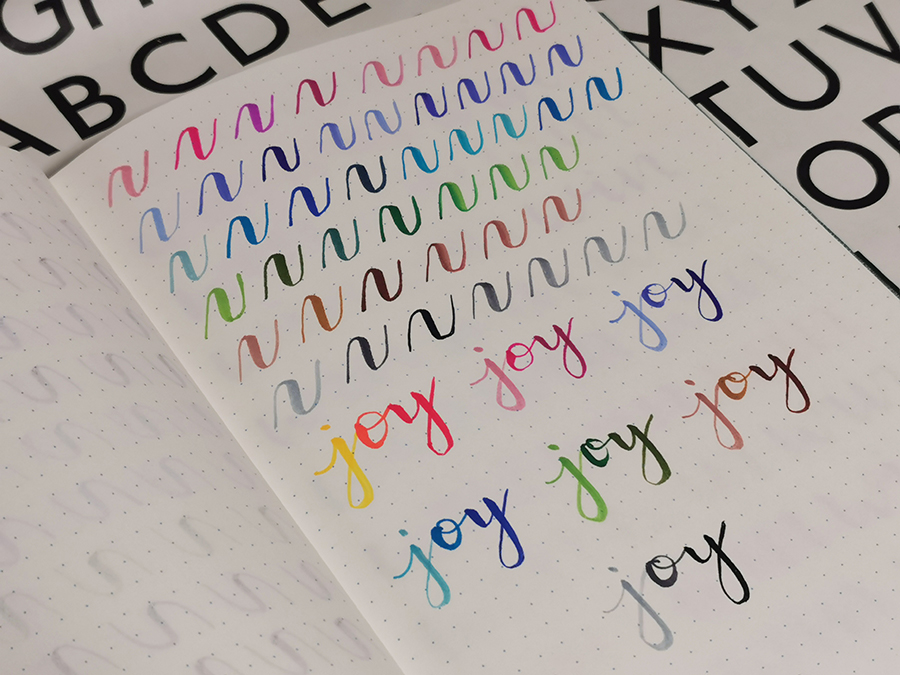 GH
ABCDE
XY
TUV
O
joy joy joy
joy joy joy
joy